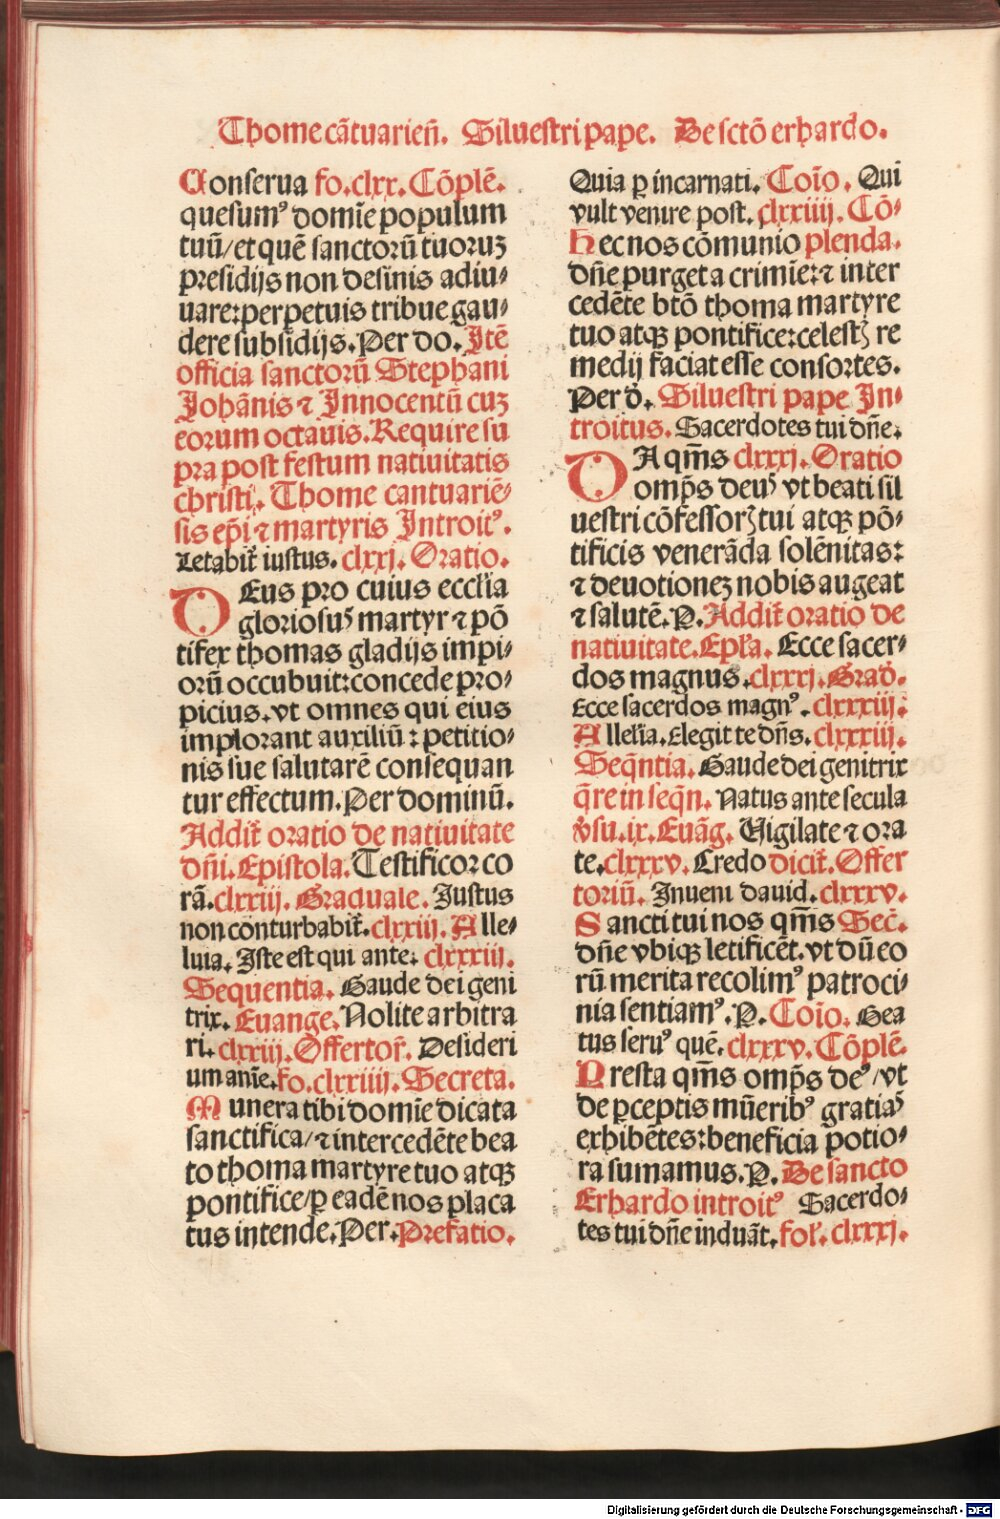 Thome cātuarieñ. Siluestri pape. De sctō erhardo.
Conserua fo.clxx. Cōplē.
quesumꝰ domīe populum
tuū/et quē sanctorū tuoruꝫ
presidijs non desinis adiu⸗
uare:perpetuis tribue gau⸗
dere subsidijs. Per do. Itē
officia sanctorū Stephani
Johānis ⁊ Innocentū cuꝫ
eorum octauis. Require su
pra post festum natiuitatis
christi. Thome cantuariē⸗
sis ep̄i ⁊ martyris Introitꝰ.
Letabit̄ iustus. clxxj. Oratio.
DEus pro cuius eccłia
gloriosuꝰ martyr ⁊ pō
tifex thomas gladijs impi⸗
orū occubuit:concede pro⸗
picius.vt omnes qui eius
implorant auxiliū : petitio⸗
nis sue salutarē consequan
tur effectum. Per dominū.
Addit̄ oratio de natiuitate
dñi. Epistola. Testificor co
rā. clxxiij. Graduale. Justus
non conturbabit̄. clxxiij. Alle⸗
luia. Iste est qui ante. clxxxiij.
Sequentia. Gaude dei geni
trix. Euange. Nolite arbitra
ri. clxxiij. Offertor̄. Desideri
um anīe. fo.clxxiiij. Secreta.
Munera tibi domīe dicata
sanctifica/⁊ intercedēte bea
to thoma martyre tuo atqꝫ
pontifice/ꝑ eadē nos placa
tus intende. Per. Prefatio.
Quia ꝑ incarnati. Coīo. Qui
vult venire post. clxxiiij. Cō⸗
Hec nos cōmunio plenda.
dñe purget a crimīe:⁊ inter
cedēte btō thoma martyre
tuo atqꝫ pontifice:celestꝭ re
medij faciat esse consortes.
Per d̄. Siluestri pape In⸗
troitus. Sacerdotes tui dñe.
DA qm̄s clxxxj. Oratio
omp̄s deuꝰ vt beati sil
uestri cōfessorꝭ tui atqꝫ pō⸗
tificis venerāda solēnitas:
⁊ deuotioneꝫ nobis augeat
⁊ salutē. P. Addit̄ oratio de
natiuitate. Epła. Ecce sacer⸗
dos magnus. clxxxj. Grad̄.
Ecce sacerdos magnꝰ. clxxxiij.
Allelīa. Elegit te dñs. clxxxiij.
Seqn̄tia. Gaude dei genitrix
q̄re in seqn̄. Natus ante secula
v̄su.ix. Euāg. Vigilate ⁊ ora
te. clxxxv. Credo dicit̄. Offer
toriū. Inueni dauid. clxxxv.
Sancti tui nos qm̄s Sec̄.
dñe vbiqꝫ letificēt.vt dū eo
rū merita recolimꝰ patroci⸗
nia sentiamꝰ. P. Coīo. Bea
tus seruꝰ quē. clxxxv. Cōplē.
Presta qm̄s omp̄s deꝰ/vt
de ꝑceptis mūeribꝰ gratiaꝰ
exhibētes:beneficia potio⸗
ra sumamus. P. De sancto
Erhardo introitꝰ Sacerdo⸗
tes tui dñe induāt. foł. clxxxj.
Digitalisierung gefördert durch die Deutsche Forschungsgemeinschaft - DFG